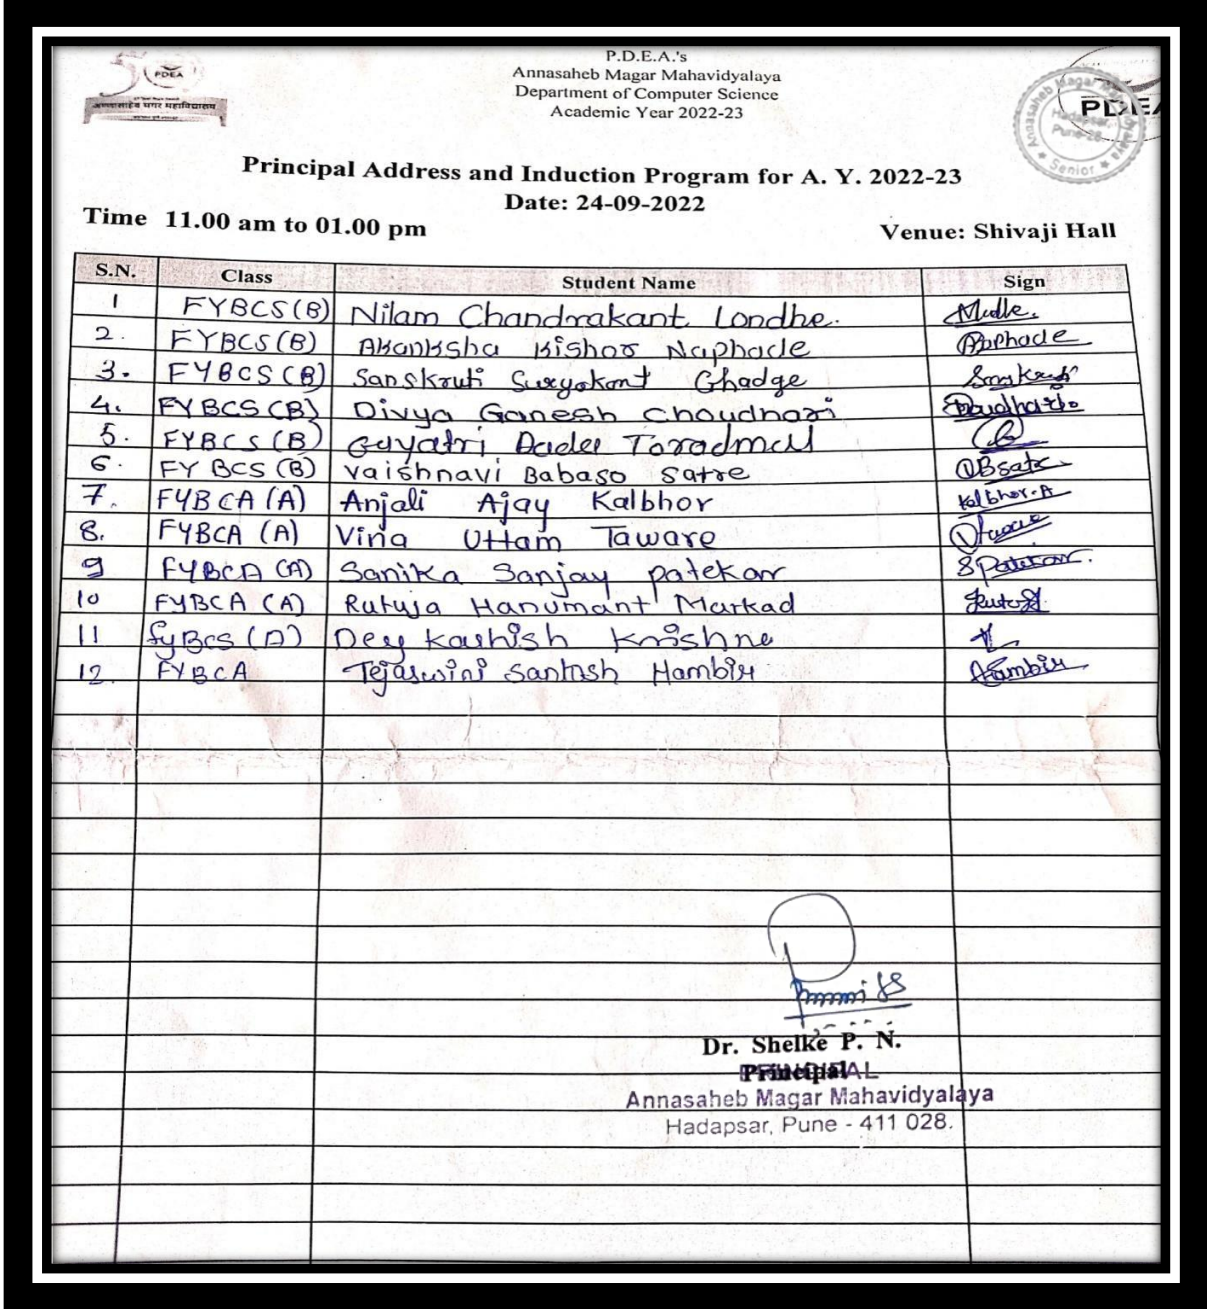 PDEA
अण्णासाहेब मगर महाविद्यालय
P.D.E.A.'s
Annasaheb Magar Mahavidyalaya
Department of Computer Science
Academic Year 2022-23
Annasaheb Magar
Hadapsar,
Pune-28
Senior
PDEA
Principal Address and Induction Program for A. Y. 2022-23
Date: 24-09-2022
Time 11.00 am to 01.00 pm Venue: Shivaji Hall
S.N. Class Student Name Sign
1 FYBCS(B) Nilam Chandrakant Londhe.
2. FYBCS(B) Akanksha Kishor Naphade Naphade
3. FYBCS(B) Sanskruti Suryakant Ghadge
4. FYBCS(B) Divya Ganesh Choudhari
5. FYBCS(B) Gayatri Dadee Toradmal
6. FY BCS(B) Vaishnavi Babaso Satre
7. FYBCA(A) Anjali Ajay Kalbhor Kalbhor.A
8. FYBCA (A) Vina Uttam Taware
9 FYBCA (A) Sanika Sanjay Patekar SPatekar.
10 FYBCA (A) Rutuja Hanumant Markad
11 fyBcs (A) Dey Kashish Krishna
12. FYBCA Tejaswini Santosh Hambir Hambir
Dr. Shelke P. N.
Principal
PRINCIPAL
Annasaheb Magar Mahavidyalaya
Hadapsar, Pune - 411 028.